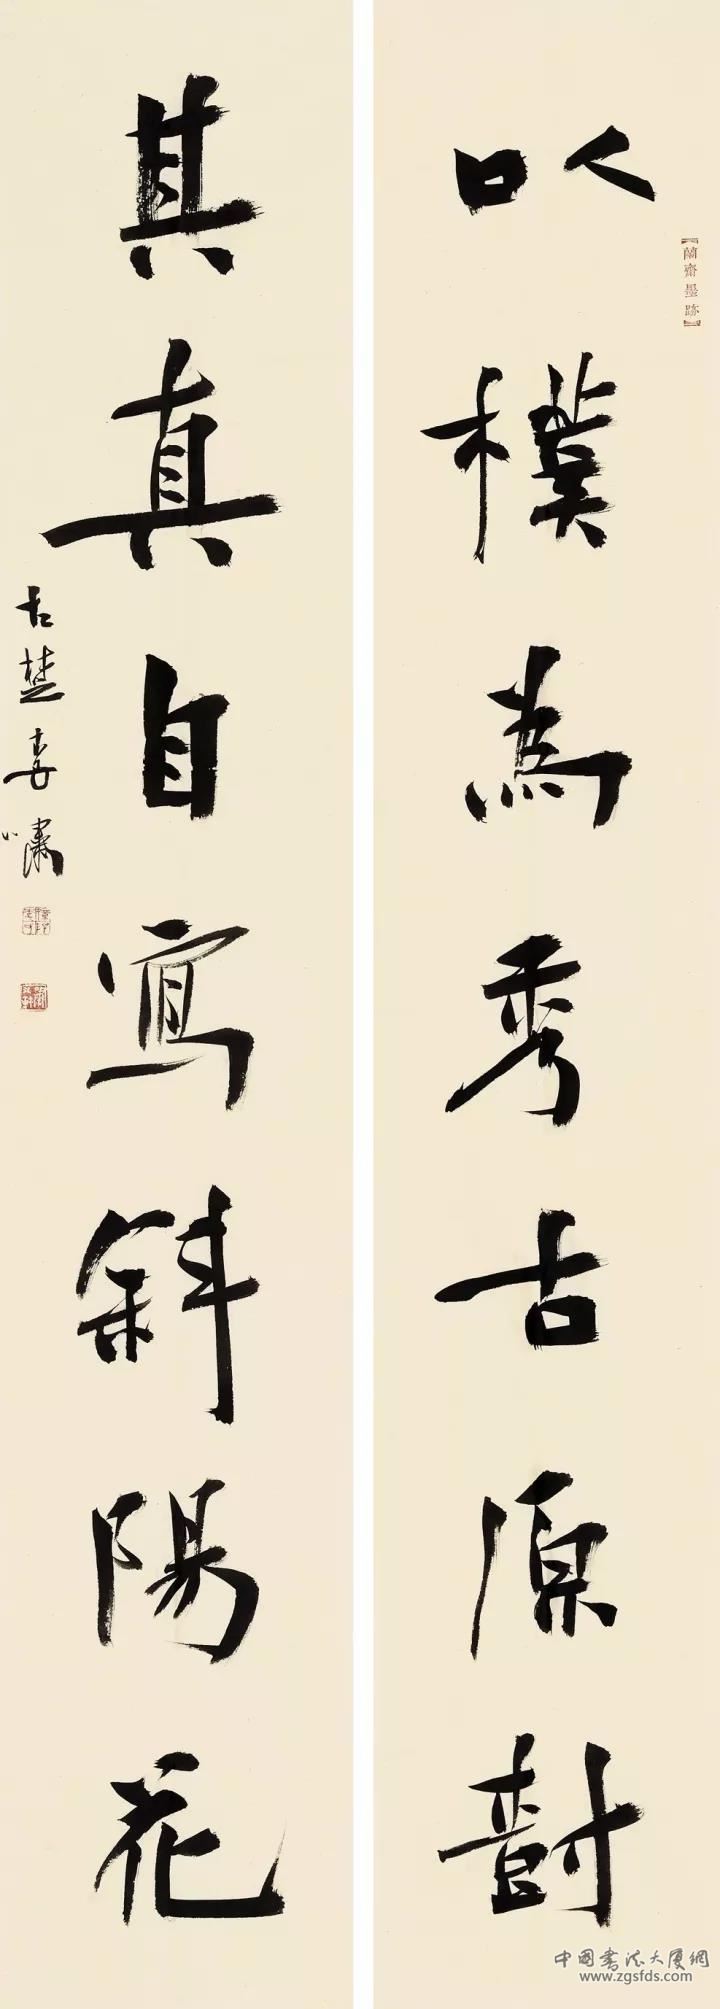 以樸為秀古原樹
蘭齋墨跡
其真自寫斜陽花
古楚李嘯
中國書法大廈網
www.zgsfds.com